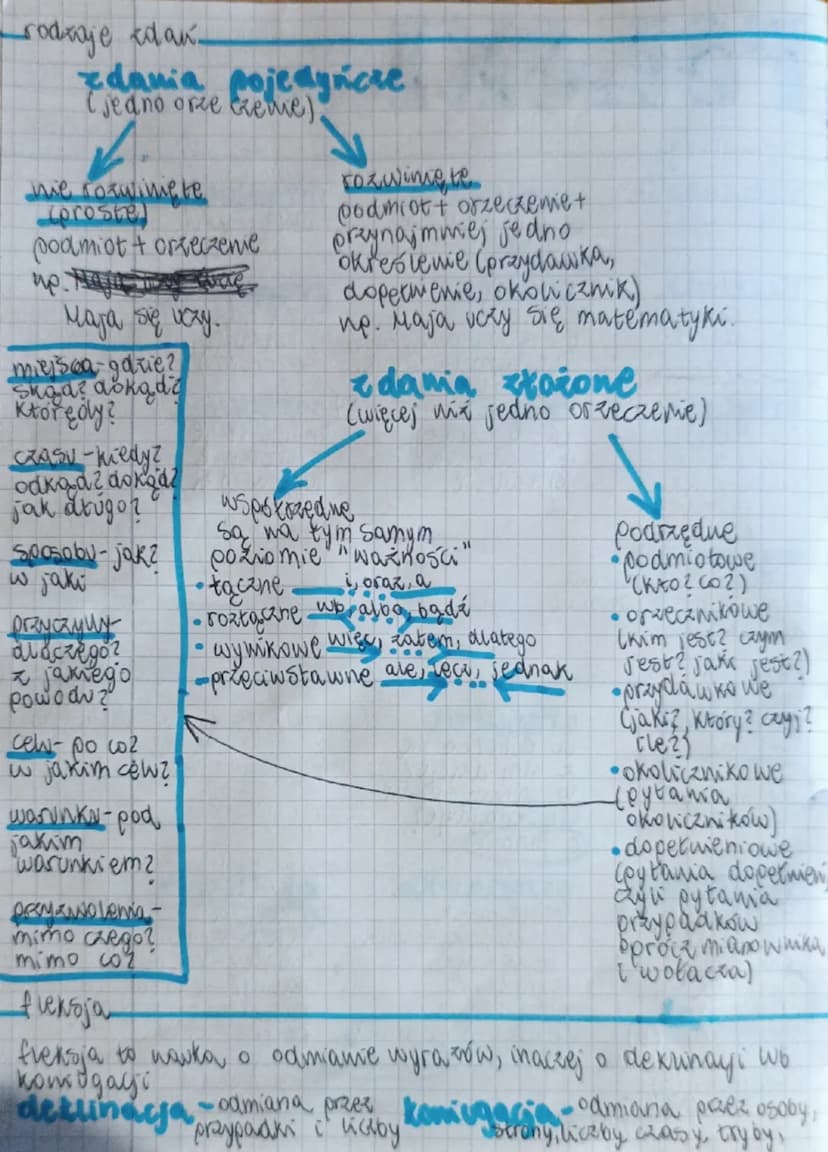 rodzaje zdań
zdania pojedyńcze
(jedno orzeczenie)
nie rozwinięte
(proste)
podmiot + orzeczenie
np.
Maja się uczy.
rozwinięte
podmiot + orzeczenie +
przynajmniej jedno
określenie (przydawka,
dopełnienie, okolicznik)
np. Maja uczy się matematyki.
zdania złożone
(więcej niż jedno orzeczenie)
współrzędne
są na tym samym
poziomie "ważności"
• łączne i, oraz, a
• rozłączne lub, albo, bądź
• wynikowe więc, zatem, dlatego
- przeciwstawne ale, lecz, jednak
podrzędne
• podmiotowe
(kto? co?)
• orzecznikowe
(kim jest? czym
jest? jaki jest?)
• przydawkowe
(jaki?, który? czyj?
ile?)
• okolicznikowe
(pytania
okoliczników)
• dopełnieniowe
(pytania dopełnień
czyli pytania
przypadków
oprócz mianownika
i wołacza)
miejsca - gdzie?
skąd? dokąd?
którędy?
czasu - kiedy?
odkąd? dokąd?
jak długo?
sposobu - jak?
w jaki
przyczyny -
dlaczego?
z jakiego
powodu?
celu - po co?
w jakim celu?
warunku - pod
jakim
warunkiem?
przyzwolenia -
mimo czego?
mimo co?
fleksja
fleksja to nauka o odmianie wyrazów, inaczej o deklinacji lub
koniugacji
deklinacja - odmiana przez
przypadki i liczby
koniugacja - odmiana przez osoby,
strony, liczby czasy, tryby,